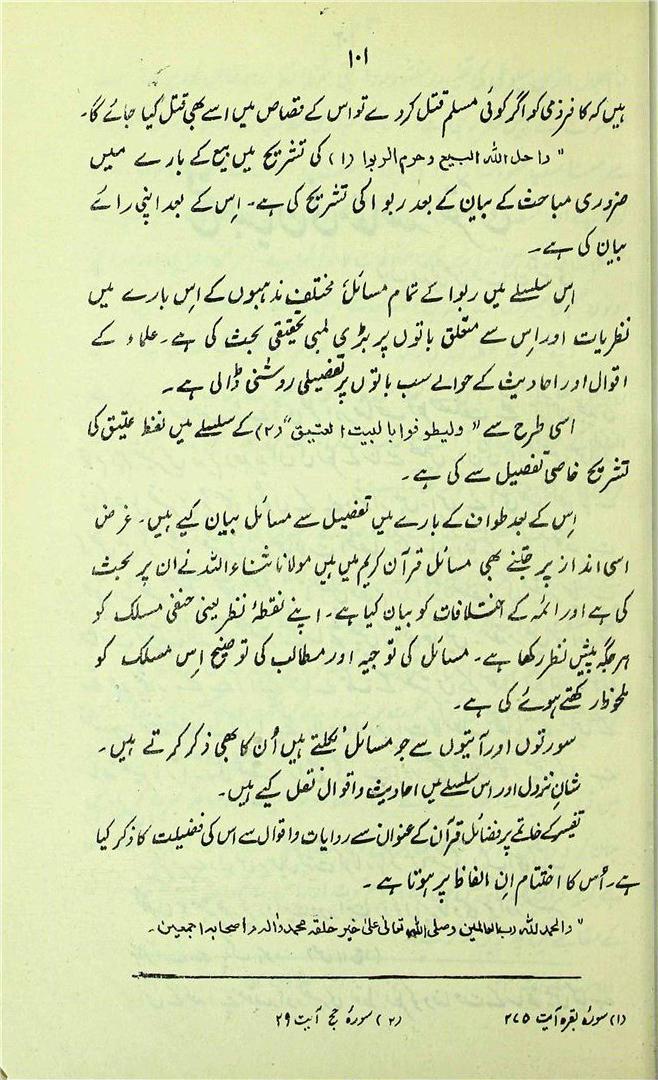 ۱۰۱
ہیں کہ کافر ذمی کو اگر کوئی مسلم قتل کر دے تو اس کے قصاص میں اسے بھی قتل کیا جائے گا۔
"واحل اللہ البیع وحرم الربوا (۱) کی تشریح میں بیع کے بارے میں
ضروری مباحث کے بیان کے بعد ربوا کی تشریح کی ہے۔ اس کے بعد اپنی رائے
بیان کی ہے۔
اِس سلسلے میں ربوا کے تمام مسائل مختلف مذہبوں کے اِس بارے میں
نظریات اور اِس سے متعلق باتوں پر بڑی لمبی تحقیقی بحث کی ہے۔ علماء کے
اقوال اور احادیث کے حوالے سب باتوں پر تفصیلی روشنی ڈالی ہے۔
اسی طرح سے "ولیطوفوا بالبیت العتیق" (۲) کے سلسلے میں لفظ عتیق کی
تشریح خاصی تفصیل سے کی ہے۔
اِس کے بعد طواف کے بارے میں تفصیل سے مسائل بیان کیے ہیں۔ غرض
اسی انداز پر جتنے بھی مسائل قرآن کریم میں ہیں مولانا ثناء اللہ نے ان پر بحث
کی ہے اور ائمہ کے اختلافات کو بیان کیا ہے۔ اپنے نقطۂ نظر یعنی حنفی مسلک کو
ہر جگہ پیش نظر رکھا ہے۔ مسائل کی توجیہ اور مطالب کی توضیح اِس مسلک کو
ملحوظ رکھتے ہوئے کی ہے۔
سورتوں اور آیتوں سے جو مسائل نکلتے ہیں اُن کا بھی ذکر کرتے ہیں۔
شانِ نزول اور اس سلسلے میں احادیث و اقوال نقل کیے ہیں۔
تفسیر کے خاتمے پر فضائل قرآن کے عنوان سے روایات و اقوال سے اس کی فضیلت کا ذکر کیا
ہے۔ اُس کا اختتام اِن الفاظ پر ہوتا ہے۔
"والحمد للہ رب العالمین وصلی اللہ تعالیٰ علیٰ خیر خلقہ محمد والہ واصحابہ اجمعین۔
(۱) سورۂ بقرہ آیت ۲۷۵ (۲) سورۂ حج آیت ۲۹